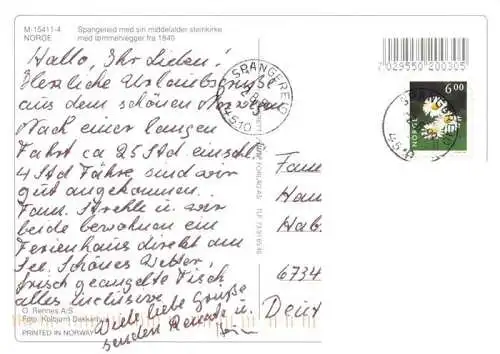 M-15411-4
NORGE
Spangereid med sin middelalder steinkirke
med tømmervegger fra 1845
Hallo, Ihr Lieben!
Herzliche Urlaubsgrüße
aus dem schönen Norwegen
Nach einer langen
Fahrt ca 25 Std einschl.
4 Std Fähre sind wir
gut angekommen.
Fam. Strehle u. wir
beide bewohnen ein
Ferienhaus direkt am
See. Schönes Wetter,
frisch geangelte Fisch
alles inclusive
Viele liebe Grüße
senden Renate u.
O. Rennes A/S
Foto: Kolbjørn Dekkerhus
PRINTED IN NORWAY
SPANGEREID
4510
7029550200305
6.00
NORGE
SPANGEREID
4510
FORLAG AS
TLF.
Fam
Hau
Hab.
6734
Deut